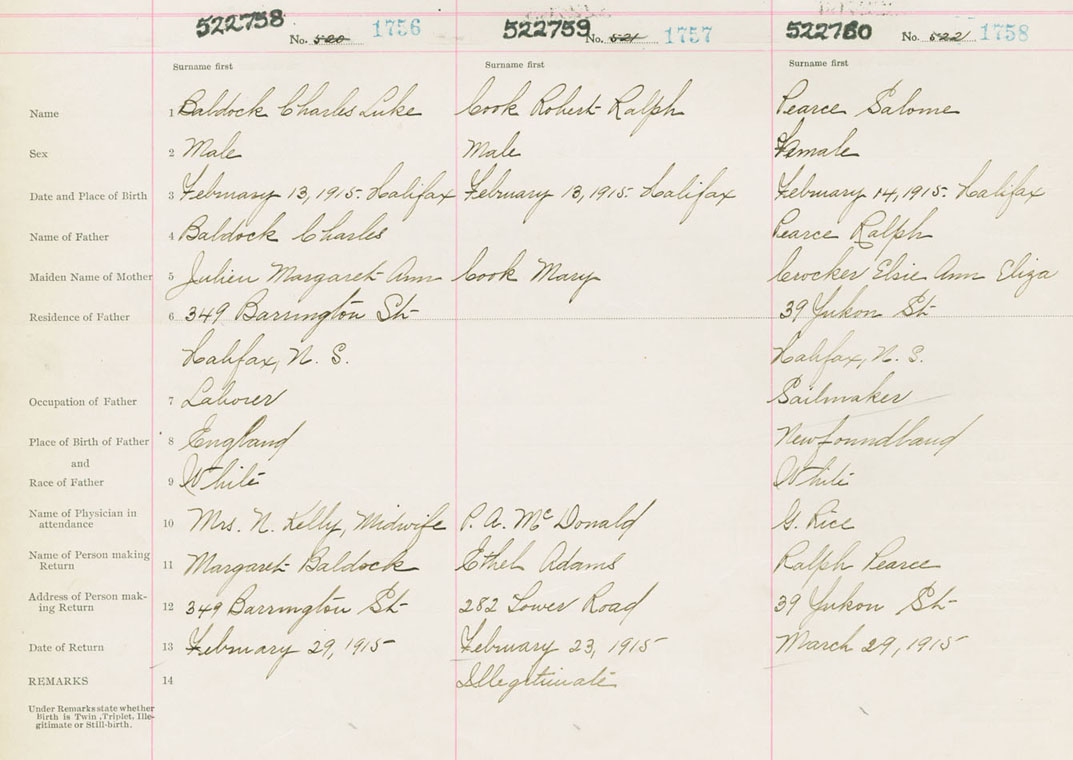 522758 No. 520 1756 522759 No. 521 1757 522760 No. 522 1758
Surname first Surname first Surname first
Name 1 Baldock Charles Luke Cook Robert Ralph Pearce Salome
Sex 2 Male Male Female
Date and Place of Birth 3 February 13, 1915. Halifax February 13, 1915. Halifax February 14, 1915. Halifax
Name of Father 4 Baldock Charles Pearce Ralph
Maiden Name of Mother 5 Julien Margaret Ann Cook Mary Crocker Elsie Ann Eliza
Residence of Father 6 349 Barrington St 39 Yukon St
Halifax, N. S. Halifax, N. S.
Occupation of Father 7 Laborer Sailmaker
Place of Birth of Father 8 England Newfoundland
and
Race of Father 9 White White
Name of Physician in
attendance 10 Mrs. N. Kelly, Midwife P. A. McDonald G. Rice
Name of Person making
Return 11 Margaret Baldock Ethel Adams Ralph Pearce
Address of Person mak-
ing Return 12 349 Barrington St 282 Lower Road 39 Yukon St
Date of Return 13 February 29, 1915 February 23, 1915 March 29, 1915
REMARKS 14 Illegitimate
Under Remarks state whether
Birth is Twin, Triplet, Ille-
gitimate or Still-birth.